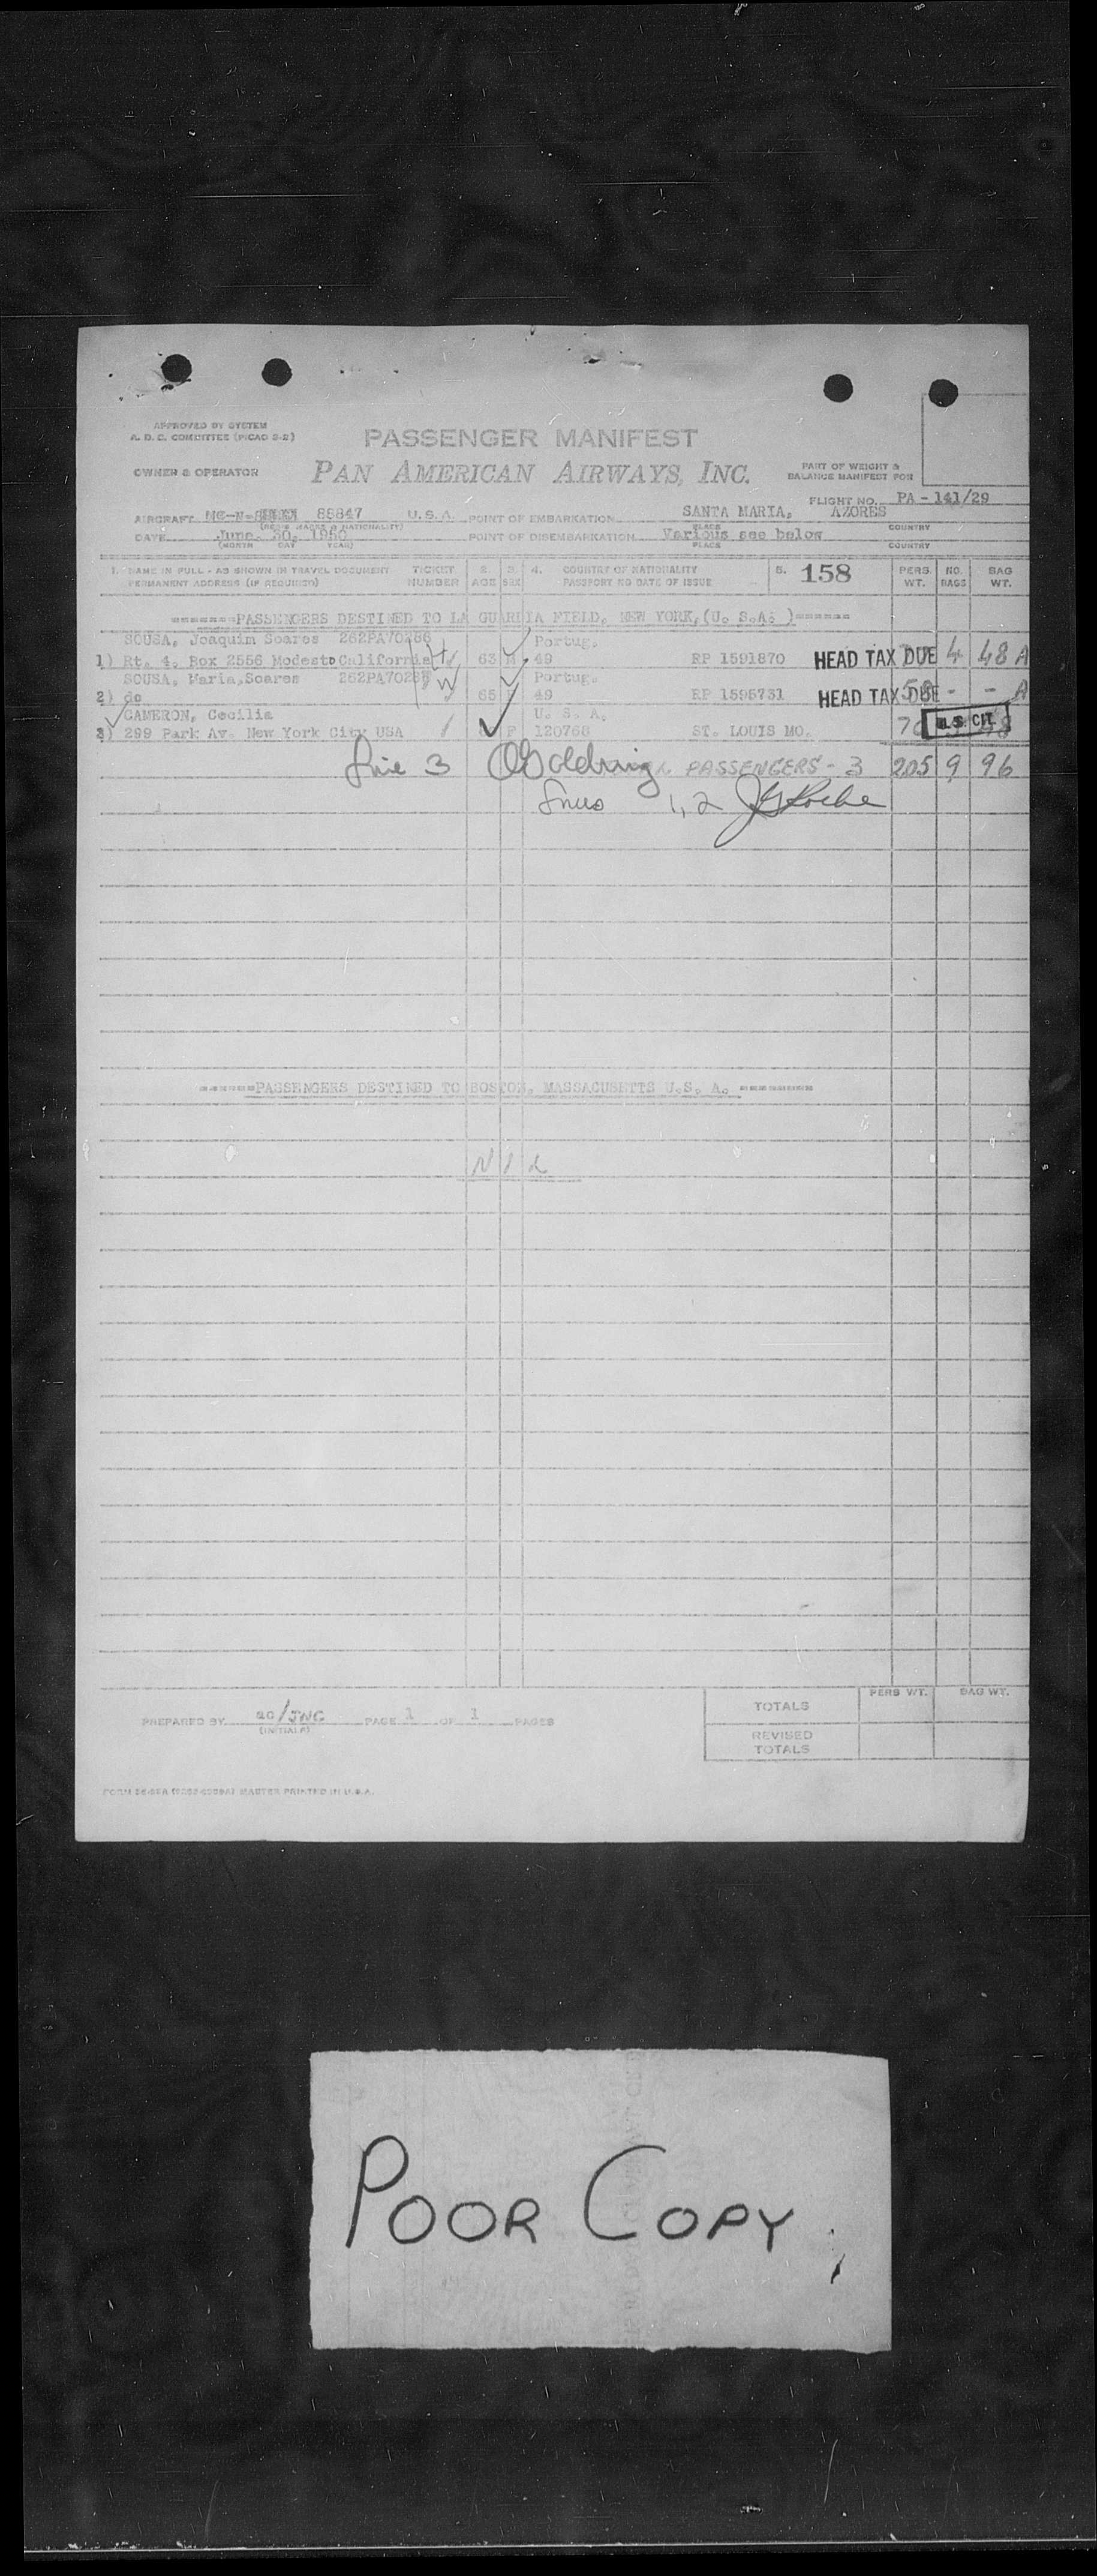 APPROVED BY SYSTEM
A. D. C. COMMITTEE (PICAO 2-2)
PASSENGER MANIFEST
OWNER & OPERATOR
PAN AMERICAN AIRWAYS, INC.
PART OF WEIGHT &
BALANCE MANIFEST FOR
FLIGHT NO. PA - 141/29
AIRCRAFT NC-N- 88847 U.S.A. POINT OF EMBARKATION SANTA MARIA, AZORES
PLACE COUNTRY
DATE June. 30, 1950 POINT OF DISEMBARKATION Various see below
(MONTH DAY YEAR) PLACE COUNTRY
1. NAME IN FULL - AS SHOWN IN TRAVEL DOCUMENT TICKET 2 3 4. COUNTRY OF NATIONALITY 5. 158 PERS. NO. BAG
PERMANENT ADDRESS (IF REQUIRED) NUMBER AGE SEX PASSPORT NO DATE OF ISSUE WT. BAGS WT.
PASSENGERS DESTINED TO LA GUARDIA FIELD, NEW YORK,(U. S.A. )
SOUSA, Joaquim Soares Portug.
1) Rt. 4. Box 2556 Modesto California 63 M 49 RP 1591870 HEAD TAX DUE 4 48 A
SOUSA, Maria,Soares Portug.
2) do 65 F 49 RP 1595731 HEAD TAX DUE - - A
CAMERON, Cecilia U. S. A.
3) 299 Park Av. New York City USA F 120768 ST. LOUIS MO. U.S. CIT.
Line 3 PASSENGERS - 3 205 9 96
Lines 1, 2
PASSENGERS DESTINED TO BOSTON, MASSACUSETTS U.S. A.
N I L
PREPARED BY ac/JWC PAGE 1 OF 1 PAGES
(INITIALS)
PERS WT. BAG WT.
TOTALS
REVISED
TOTALS
MASTER PRINTED IN U.S.A.
POOR COPY